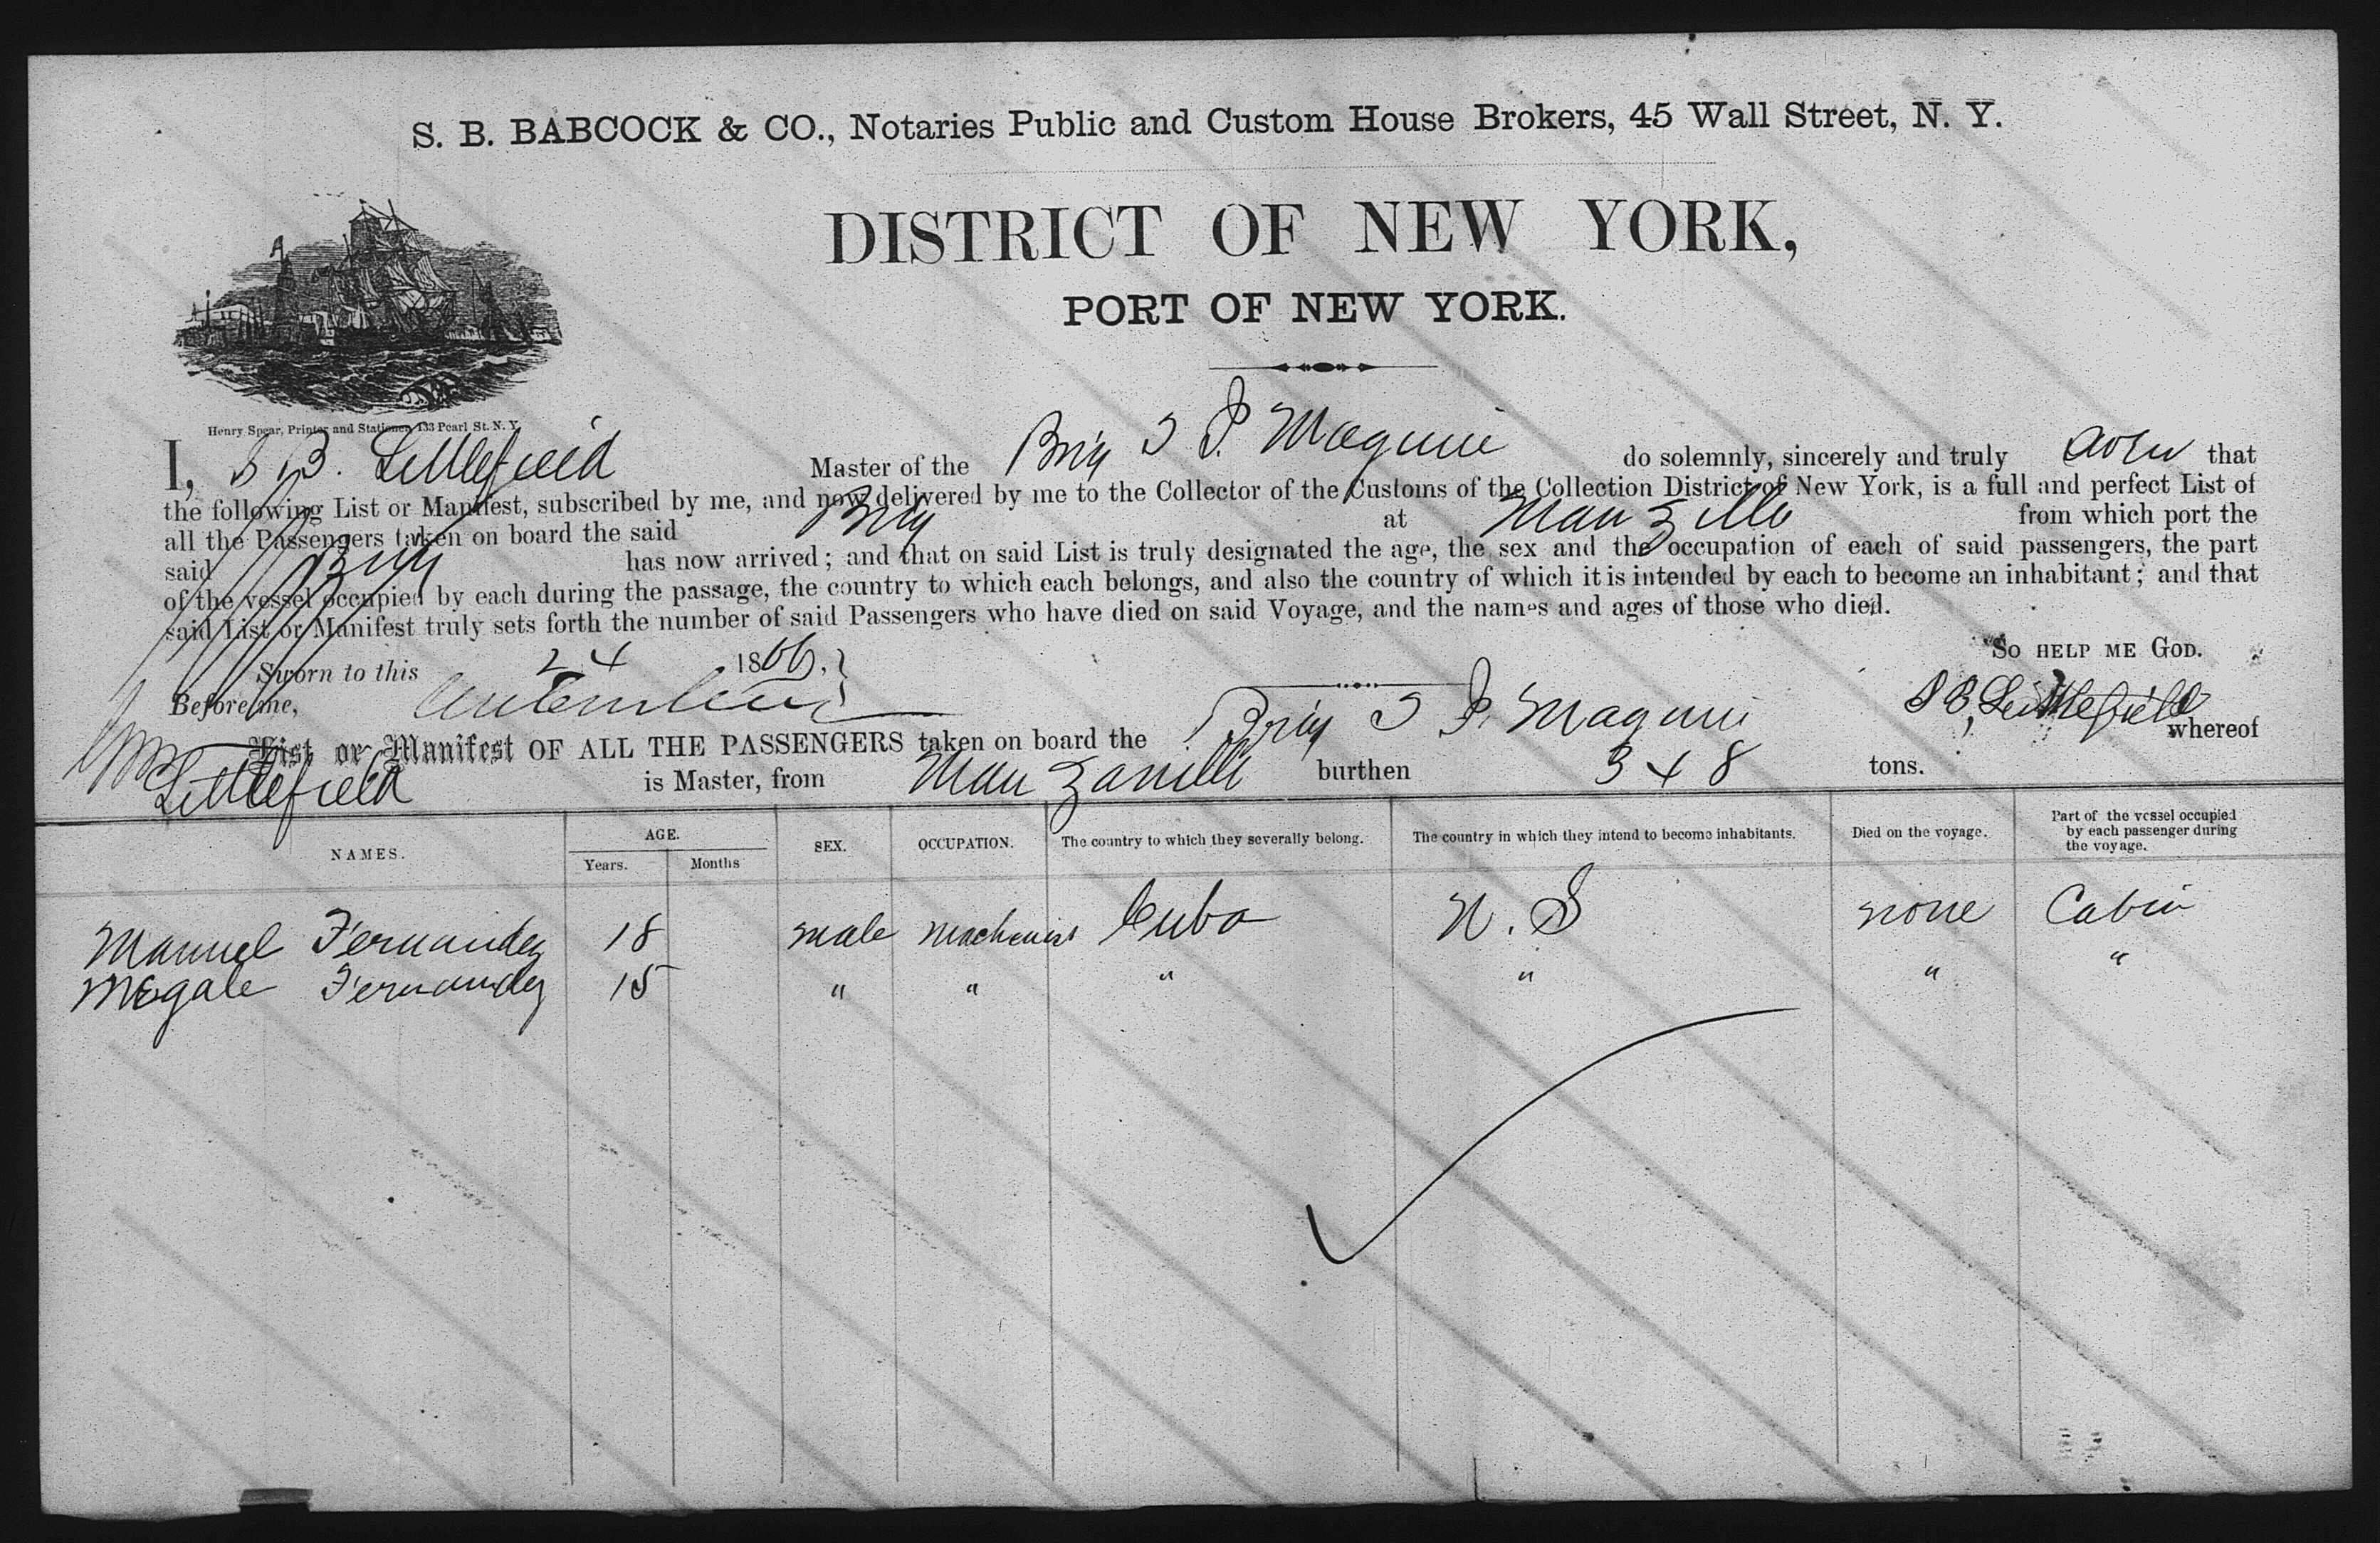 S. B. BABCOCK & CO., Notaries Public and Custom House Brokers, 45 Wall Street, N. Y.
DISTRICT OF NEW YORK,
PORT OF NEW YORK.
Henry Spear, Printer and Stationer, 133 Pearl St. N. Y.
I, S B. Littlefield Master of the Brig J P. Maguire do solemnly, sincerely and truly that
the following List or Manifest, subscribed by me, and now delivered by me to the Collector of the Customs of the Collection District of New York, is a full and perfect List of
all the Passengers taken on board the said Brig at Manzillo from which port the
said Brig has now arrived; and that on said List is truly designated the age, the sex and the occupation of each of said passengers, the part
of the vessel occupied by each during the passage, the country to which each belongs, and also the country of which it is intended by each to become an inhabitant; and that
said List or Manifest truly sets forth the number of said Passengers who have died on said Voyage, and the names and ages of those who died.
So HELP ME GOD.
Sworn to this 24 1866.
Before me, S B. Littlefield
List or Manifest OF ALL THE PASSENGERS taken on board the Brig J P. Maguire whereof
Littlefield is Master, from Manzanillo burthen 348 tons.
NAMES. AGE. Years. Months SEX. OCCUPATION. The country to which they severally belong. The country in which they intend to become inhabitants. Died on the voyage. Part of the vessel occupied by each passenger during the voyage.
Manuel Fernandez 18 male machinist Cuba U. S none Cabin
Megale Fernandez 15 " " " " " "